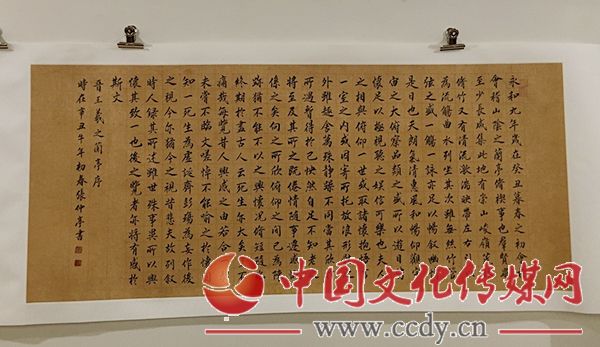 永和九年歲在癸丑暮春之初會
會稽山陰之蘭亭脩稧事也群賢
至少長咸集此地有崇山峻嶺
脩竹又有清流激湍映帶左右引
為流觴曲水列坐其次雖無絲竹管
弦之盛一觴一詠亦足以暢叙幽
是日也天朗氣清惠風和暢仰觀宇
宙之大俯察品類之盛所以遊目
懷足以極視聽之娛信可樂也夫
之相與俯仰一世或取諸懷抱悟
一室之内或因寄所託放浪形
外雖趣舍萬殊靜躁不同當其欣
所遇暫得於己快然自足不知老
將至及其所之既倦情隨事遷
係之矣向之所欣俛仰之間已為陳
跡猶不能不以之興懷況脩短隨
終期於盡古人云死生亦大矣豈不
痛哉每覽昔人興感之由若合一
未嘗不臨文嗟悼不能喻之於懷
知一死生為虛誕齊彭殤為妄作後
之視今亦猶今之視昔悲夫故列叙
時人錄其所述雖世殊事異所以興
懷其致一也後之覽者亦將有感於
斯文
晉王羲之蘭亭序
時在辛丑年年初春張仲亭書
中国文化传媒网
www.ccdy.cn